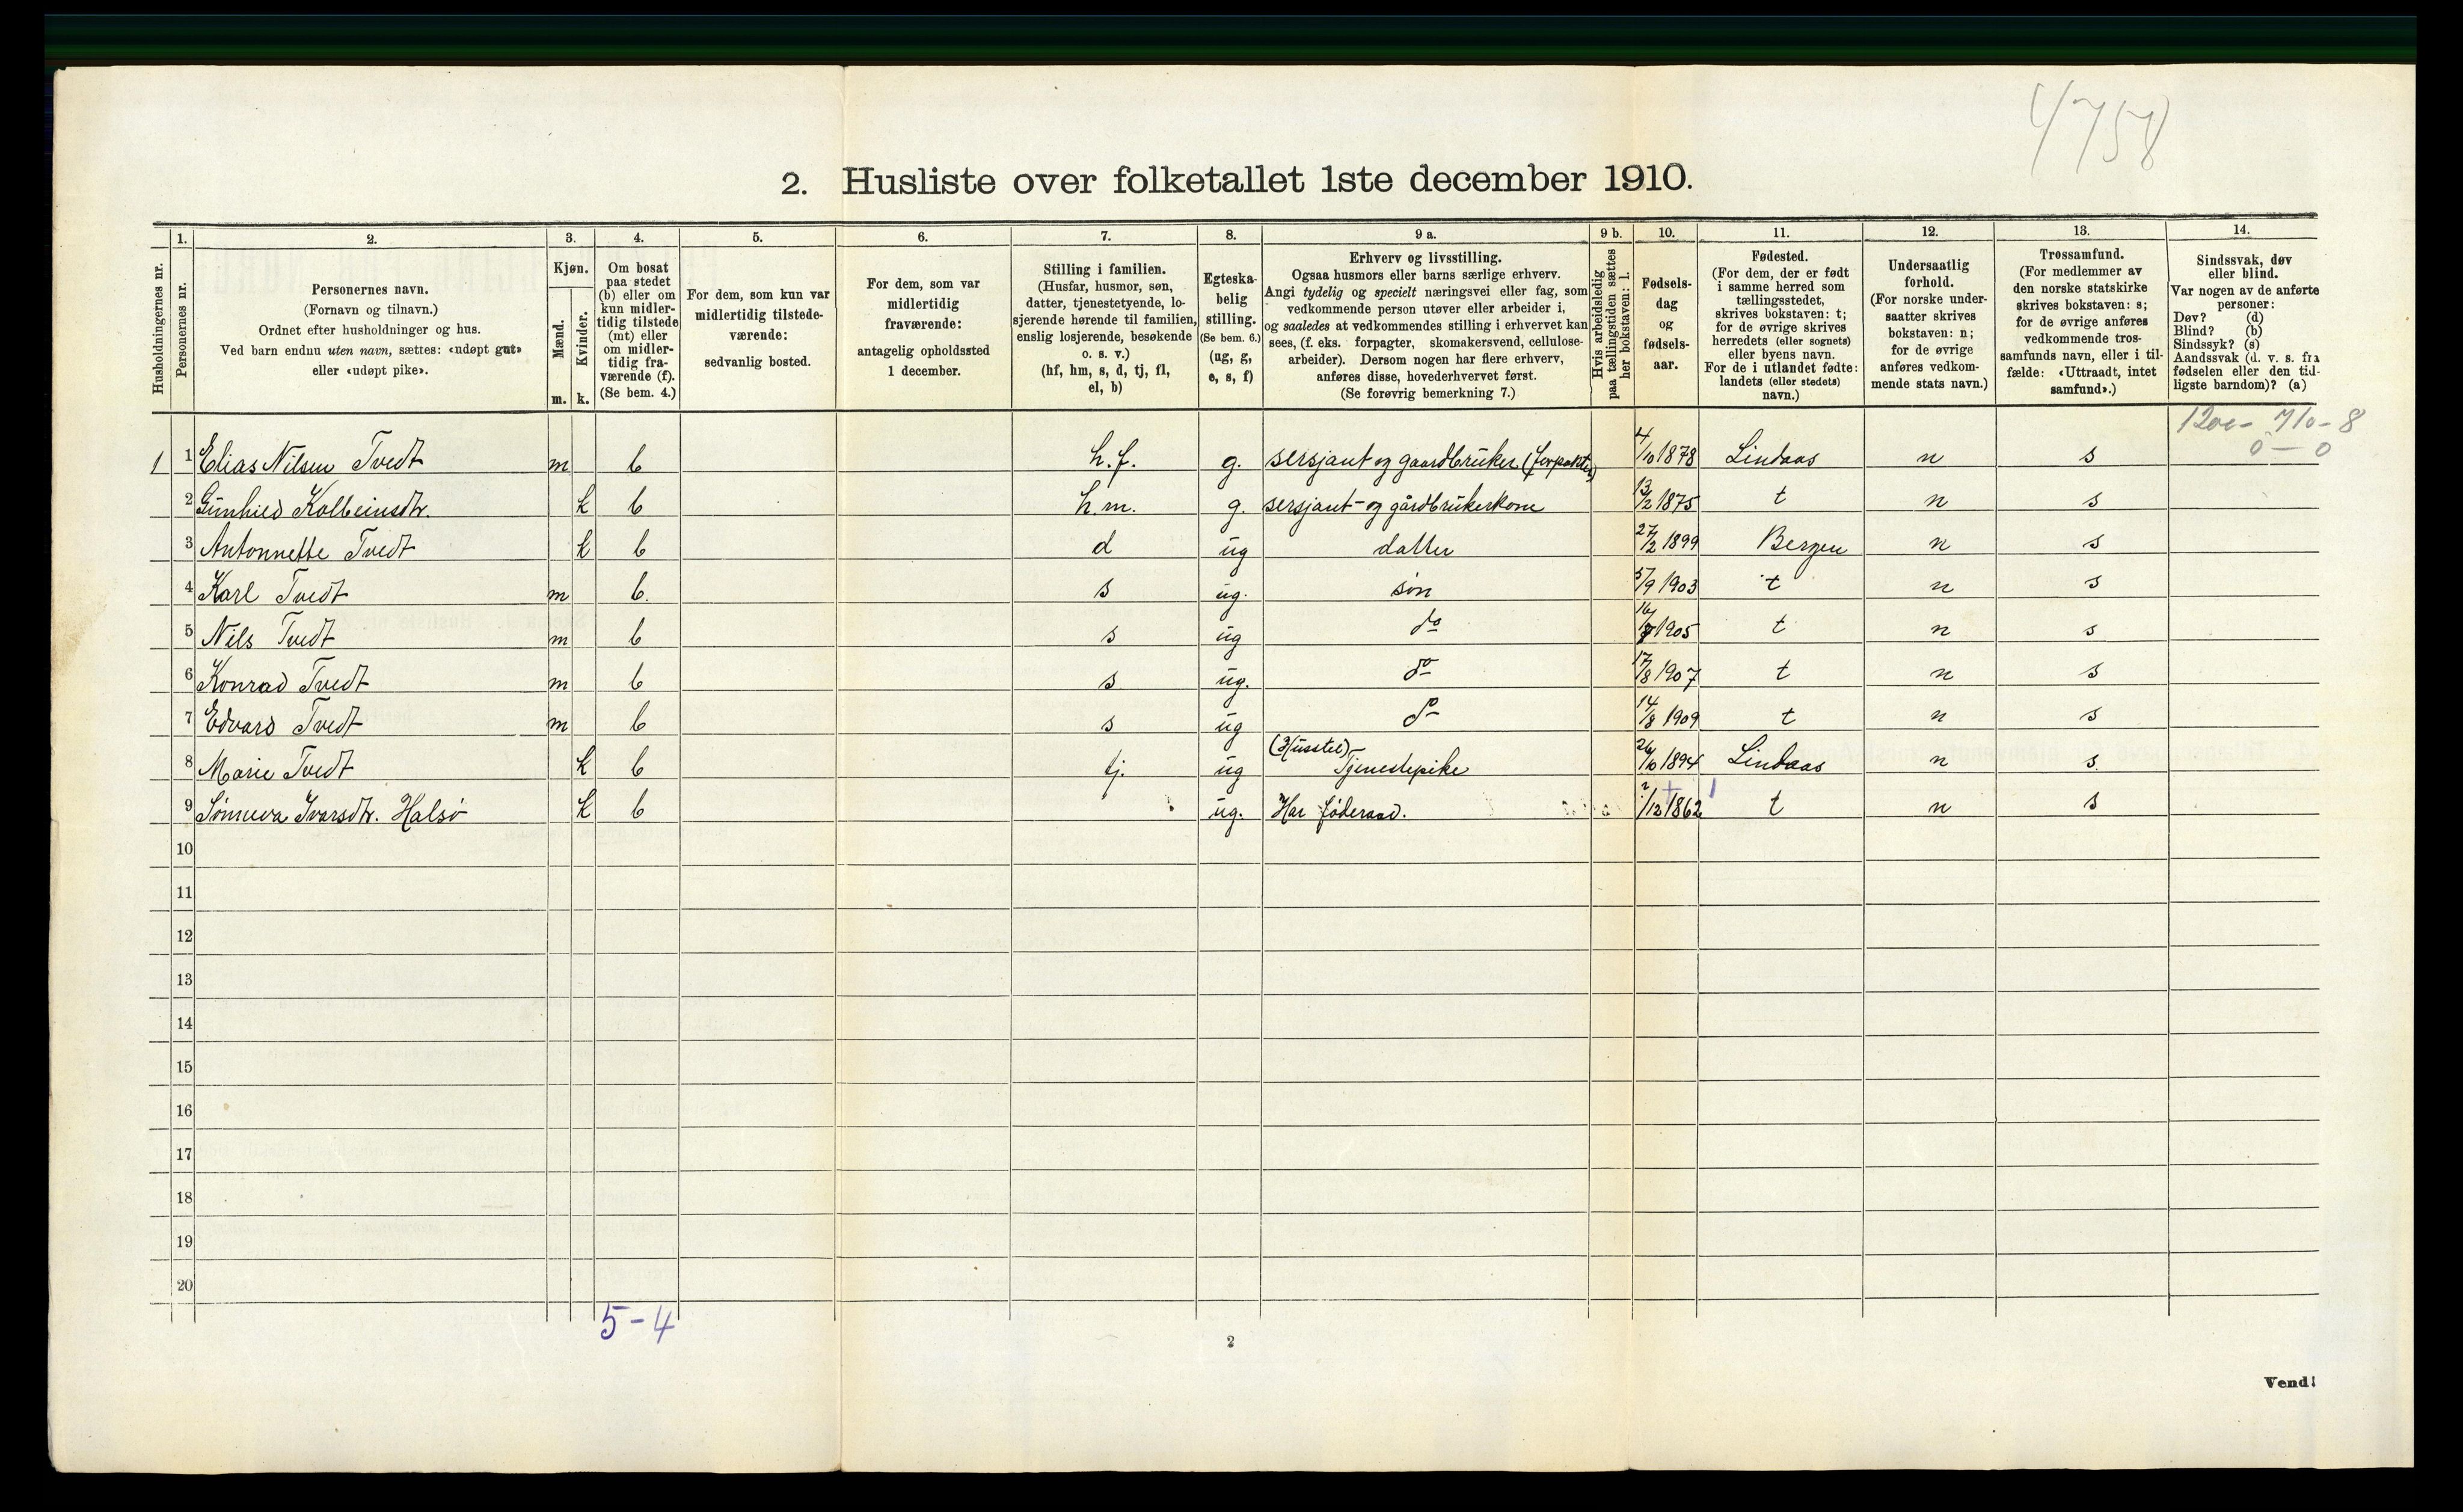 4758
2. Husliste over folketallet 1ste december 1910.
Husholdningernes nr.
1.
Personernes nr.
2.
Personernes navn.
(Fornavn og tilnavn.)
Ordnet efter husholdninger og hus.
Ved barn endnu uten navn, sættes: «udøpt gut»
eller «udøpt pike».
3.
Kjøn.
Mænd.
Kvinder.
m. k.
4.
Om bosat
paa stedet
(b) eller om
kun midler-
tidig tilstede
(mt) eller
om midler-
tidig fra-
værende (f).
(Se bem. 4.)
5.
For dem, som kun var
midlertidig tilstede-
værende:
sedvanlig bosted.
6.
For dem, som var
midlertidig
fraværende:
antagelig opholdssted
1 december.
7.
Stilling i familien.
(Husfar, husmor, søn,
datter, tjenestetyende, lo-
sjerende hørende til familien,
enslig losjerende, besøkende
o. s. v.)
(hf, hm, s, d, tj, fl,
el, b)
8.
Egteska-
belig
stilling.
(Se bem. 6.)
(ug, g,
e, s, f)
9 a.
Erhverv og livsstilling.
Ogsaa husmors eller barns særlige erhverv.
Angi tydelig og specielt næringsvei eller fag, som
vedkommende person utøver eller arbeider i,
og saaledes at vedkommendes stilling i erhvervet kan
sees, (f. eks. forpagter, skomakersvend, cellulose-
arbeider). Dersom nogen har flere erhverv,
anføres disse, hovederhvervet først.
(Se forøvrig bemerkning 7.)
9 b.
Hvis arbeidsledig
paa tællingstiden sættes
her bokstaven: l.
10.
Fødsels-
dag
og
fødsels-
aar.
11.
Fødested.
(For dem, der er født
i samme herred som
tællingsstedet,
skrives bokstaven: t;
for de øvrige skrives
herredets (eller sognets)
eller byens navn.
For de i utlandet fødte:
landets (eller stedets)
navn.)
12.
Undersaatlig
forhold.
(For norske under-
saatter skrives
bokstaven: n;
for de øvrige
anføres vedkom-
mende stats navn.)
13.
Trossamfund.
(For medlemmer av
den norske statskirke
skrives bokstaven: s;
for de øvrige anføres
vedkommende tros-
samfunds navn, eller i til-
fælde: «Uttraadt, intet
samfund».)
14.
Sindssvak, døv
eller blind.
Var nogen av de anførte
personer:
Døv? (d)
Blind? (b)
Sindssyk? (s)
Aandssvak (d. v. s. fra
fødselen eller den tid-
ligste barndom)? (a)
1200 - 710 - 8
0 - 0
1 1 Elias Nilsen Tvedt m b h.f. g. sersjant og gaardbruker (forpakter) 4/10 1878 Lindaas n s
2 Gunhild Kolbeinsdtr. k b h.m. g. sersjant- og gårdbrukerkone 13/2 1875 t n s
3 Antonnette Tvedt k b d ug datter 27/2 1899 Bergen n s
4 Karl Tvedt m b. s ug. søn 5/9 1903 t n s
5 Nils Tvedt m b s ug do 16/7 1905 t n s
6 Konrad Tvedt m b s ug. do 17/8 1907 t n s
7 Edvard Tvedt m b s ug do 14/8 1909 t n s
8 Marie Tvedt k b tj. ug (Husstel) Tjenestepike 26/10 1894 Lindaas n s.
9 Sønneva Ivarsdtr. Halsø k b ug. Har føderaad. ?/12 1862 t n s
10
11
12
13
14
15
16
17
18
19
20
5-4
2
Vend!